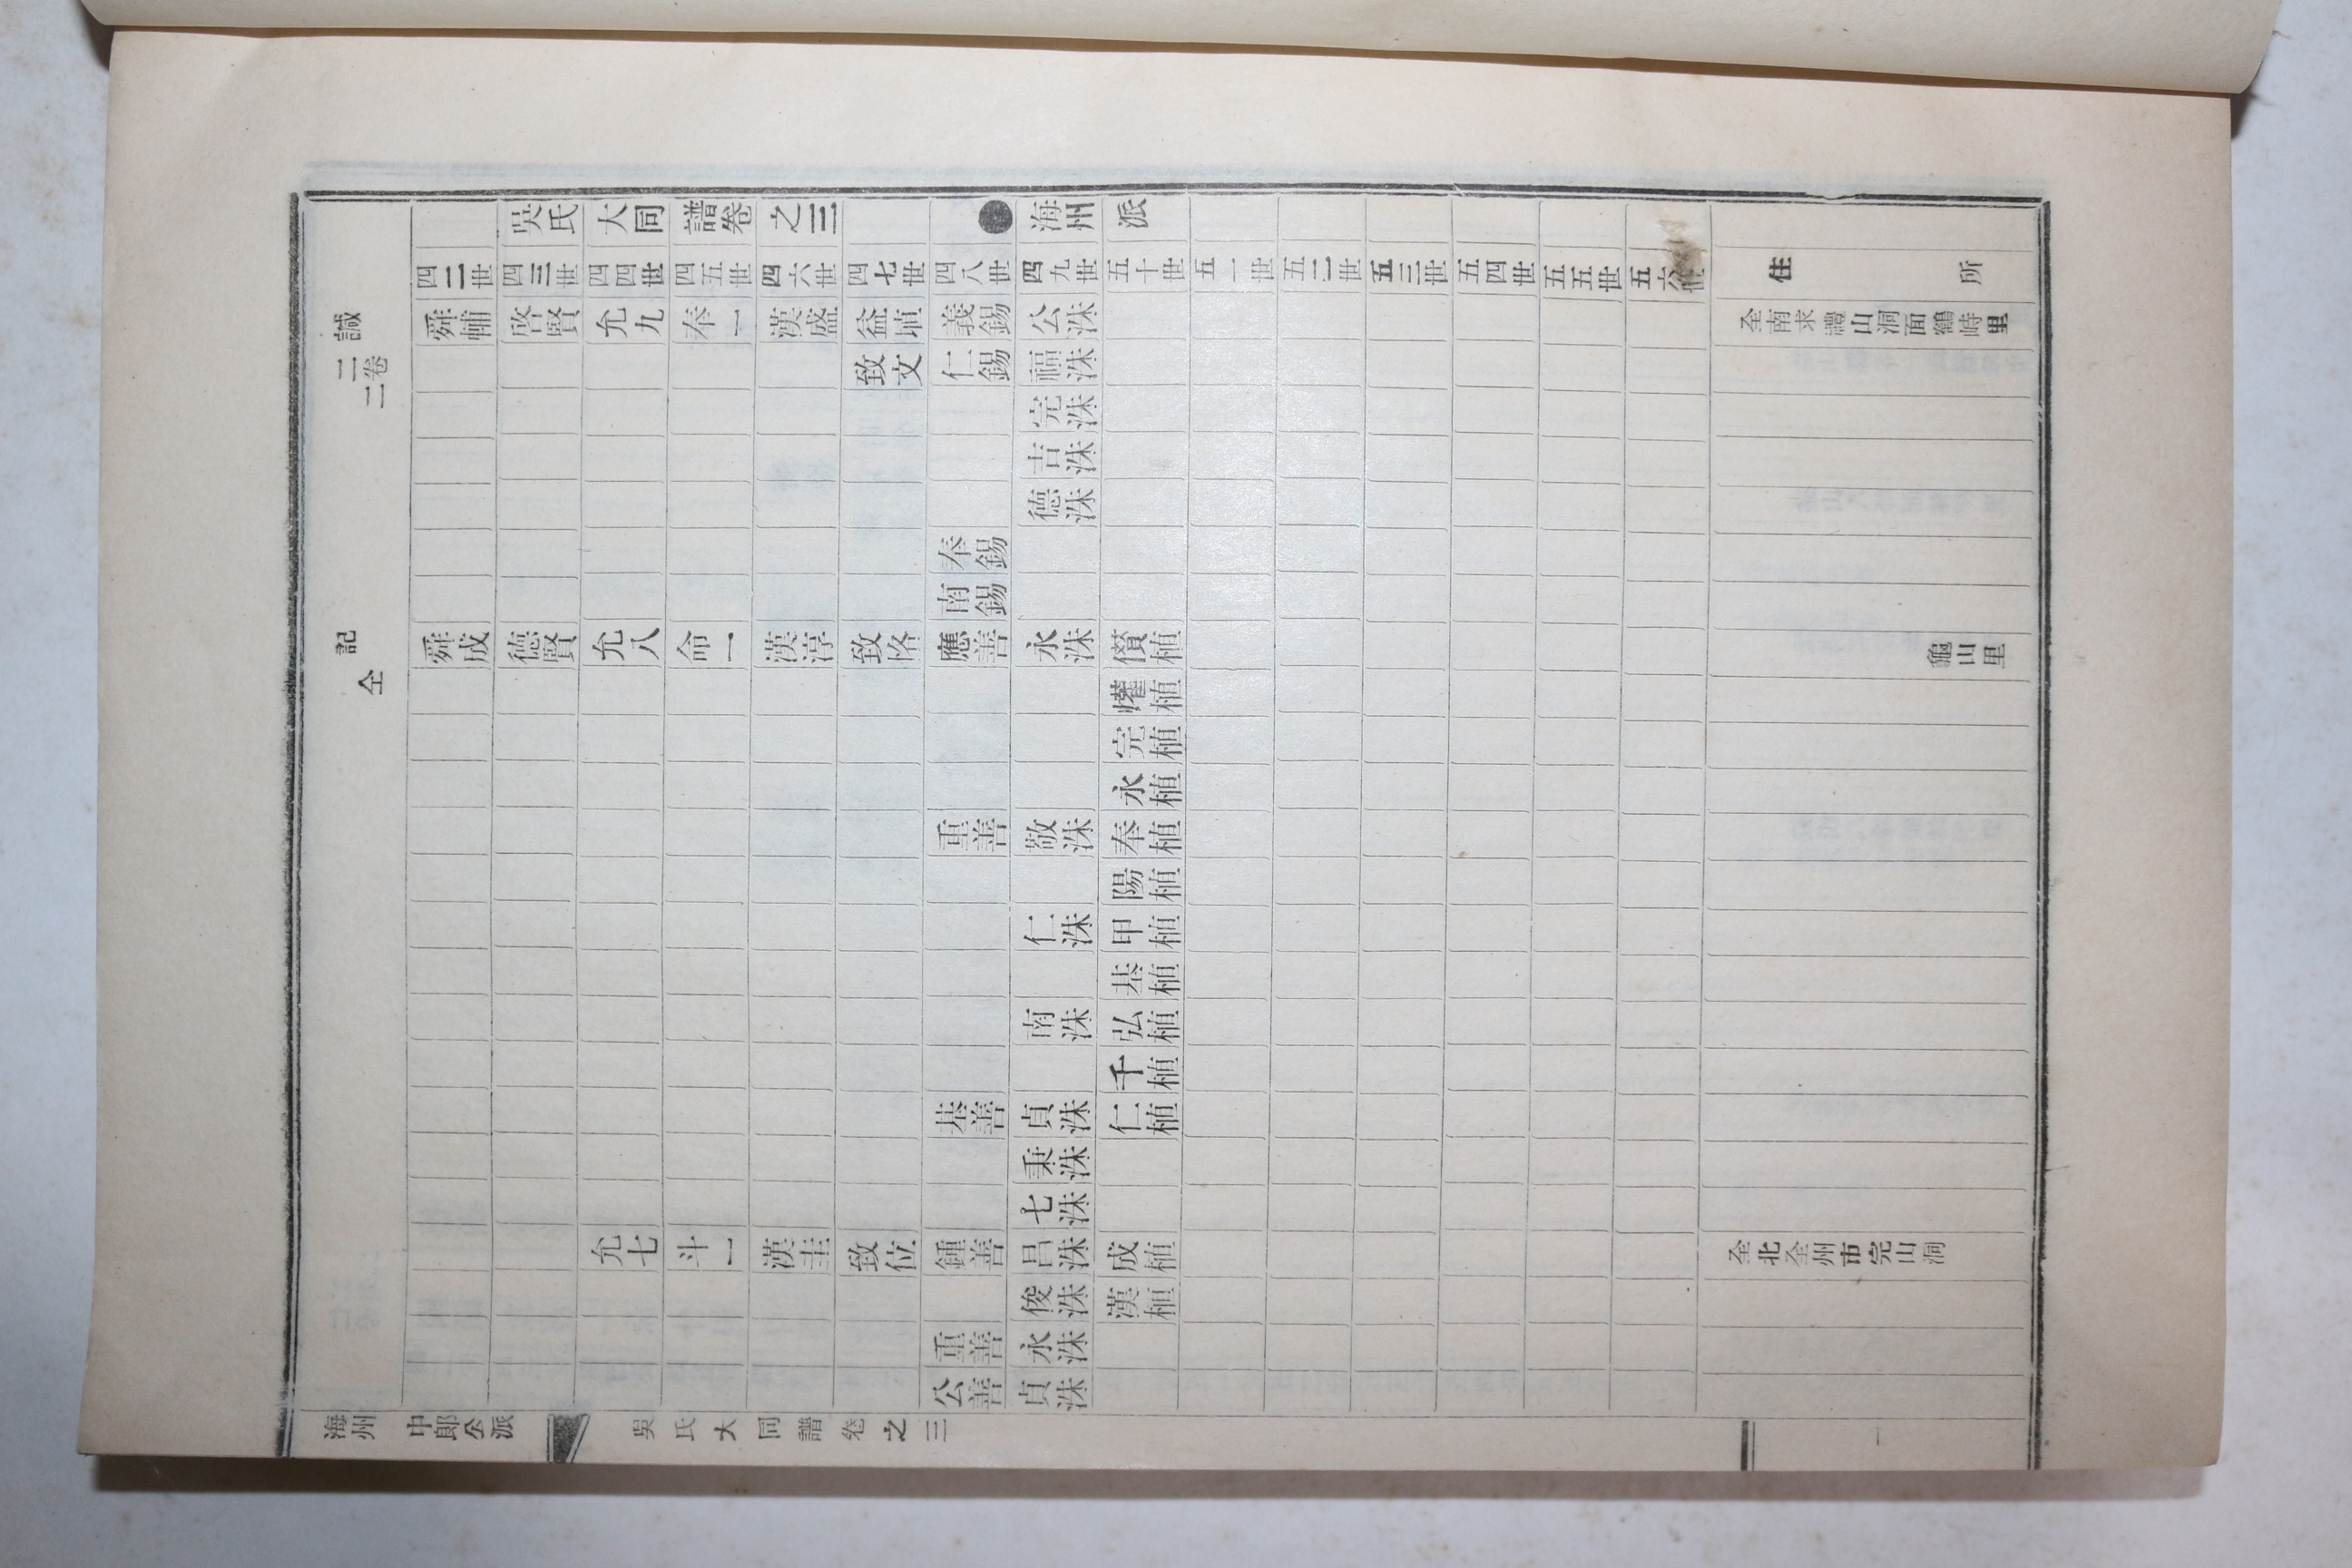 吳氏大同譜卷之三 ●海州派
四二世 四三世 四四世 四五世 四六世 四七世 四八世 四九世 五十世 五一世 五二世 五三世 五四世 五五世 五六世 住所
諴 三卷二 舜輔 啓賢 允九 奉一 漢盛 益埴 義錫 公洙 全南求禮山洞面鶴峙里
致文 仁錫 福洙
完洙
吉洙
德洙
奉錫
南錫
記 仝 舜成 德賢 允八 命一 漢淳 致恪 應善 永洙 植 龜山里
植
完植
永植
重善 敬洙 奉植
陽植
仁洙 甲植
基植
南洙 弘植
千植
基善 貞洙 仁植
秉洙
七洙
允七 斗一 漢圭 致位 鍾善 昌洙 成植 全北全州市完山洞
俊洙 漢植
重善 永洙
公善 貞洙
海州 中郎公派 吳氏大同譜卷之三 一